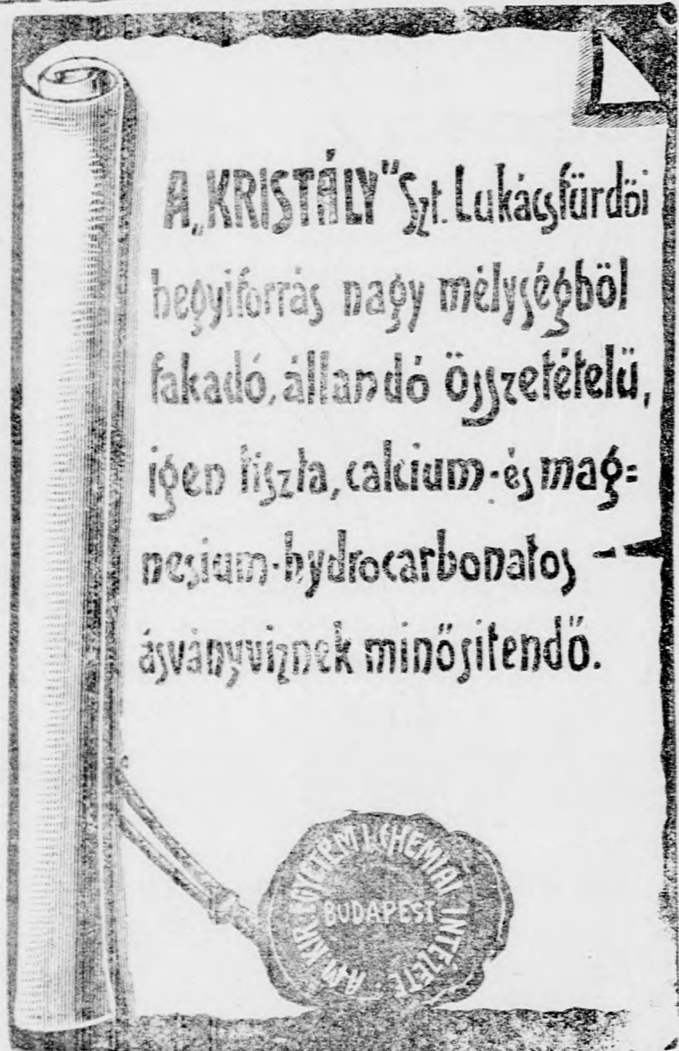 A „KRISTÁLY" Szt. Lukácsfürdői
hegyiforrás nagy mélységből
fakadó, állandó összetételű,
igen tiszta, calcium- és mag=
nesium-hydrocarbonatos –
ásványviznek minősitendő.
A M. KIR. EGYETEM I. CHEMIAI INTÉZETE
BUDAPEST